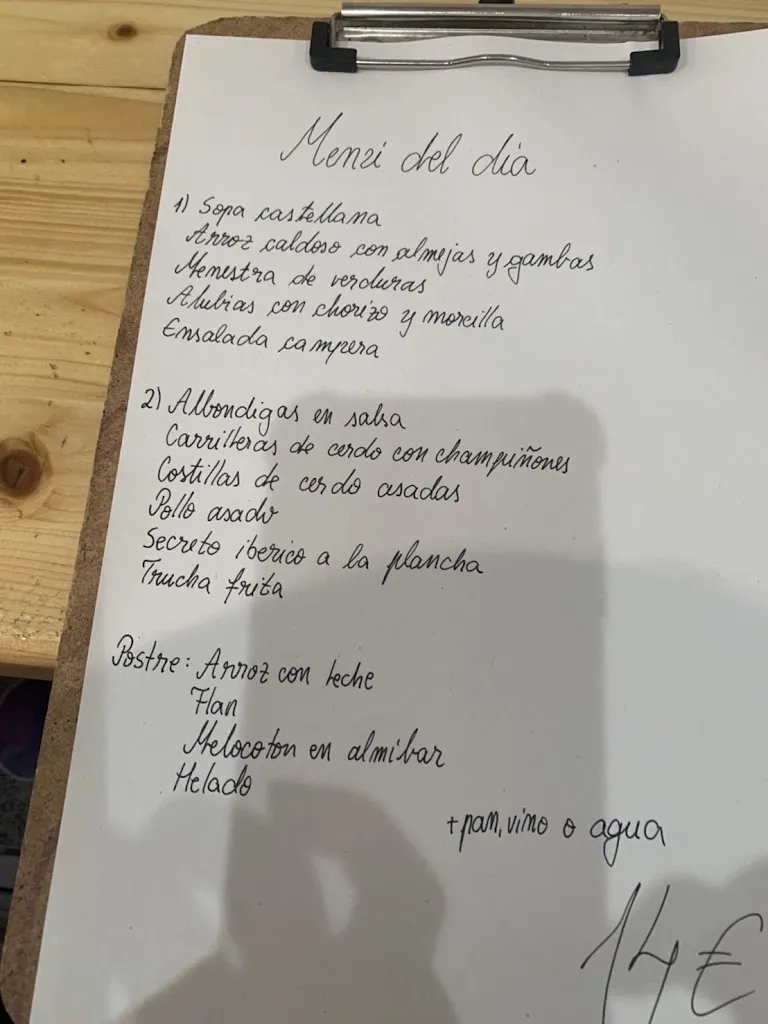 Menú del día
1) Sopa castellana
Arroz caldoso con almejas y gambas
Menestra de verduras
Alubias con chorizo y morcilla
Ensalada campera
2) Albondigas en salsa
Carrilleras de cerdo con champiñones
Costillas de cerdo asadas
Pollo asado
Secreto iberico a la plancha
Trucha frita
Postre: Arroz con leche
Flan
Melocoton en almibar
Helado
+pan, vino o agua
14€